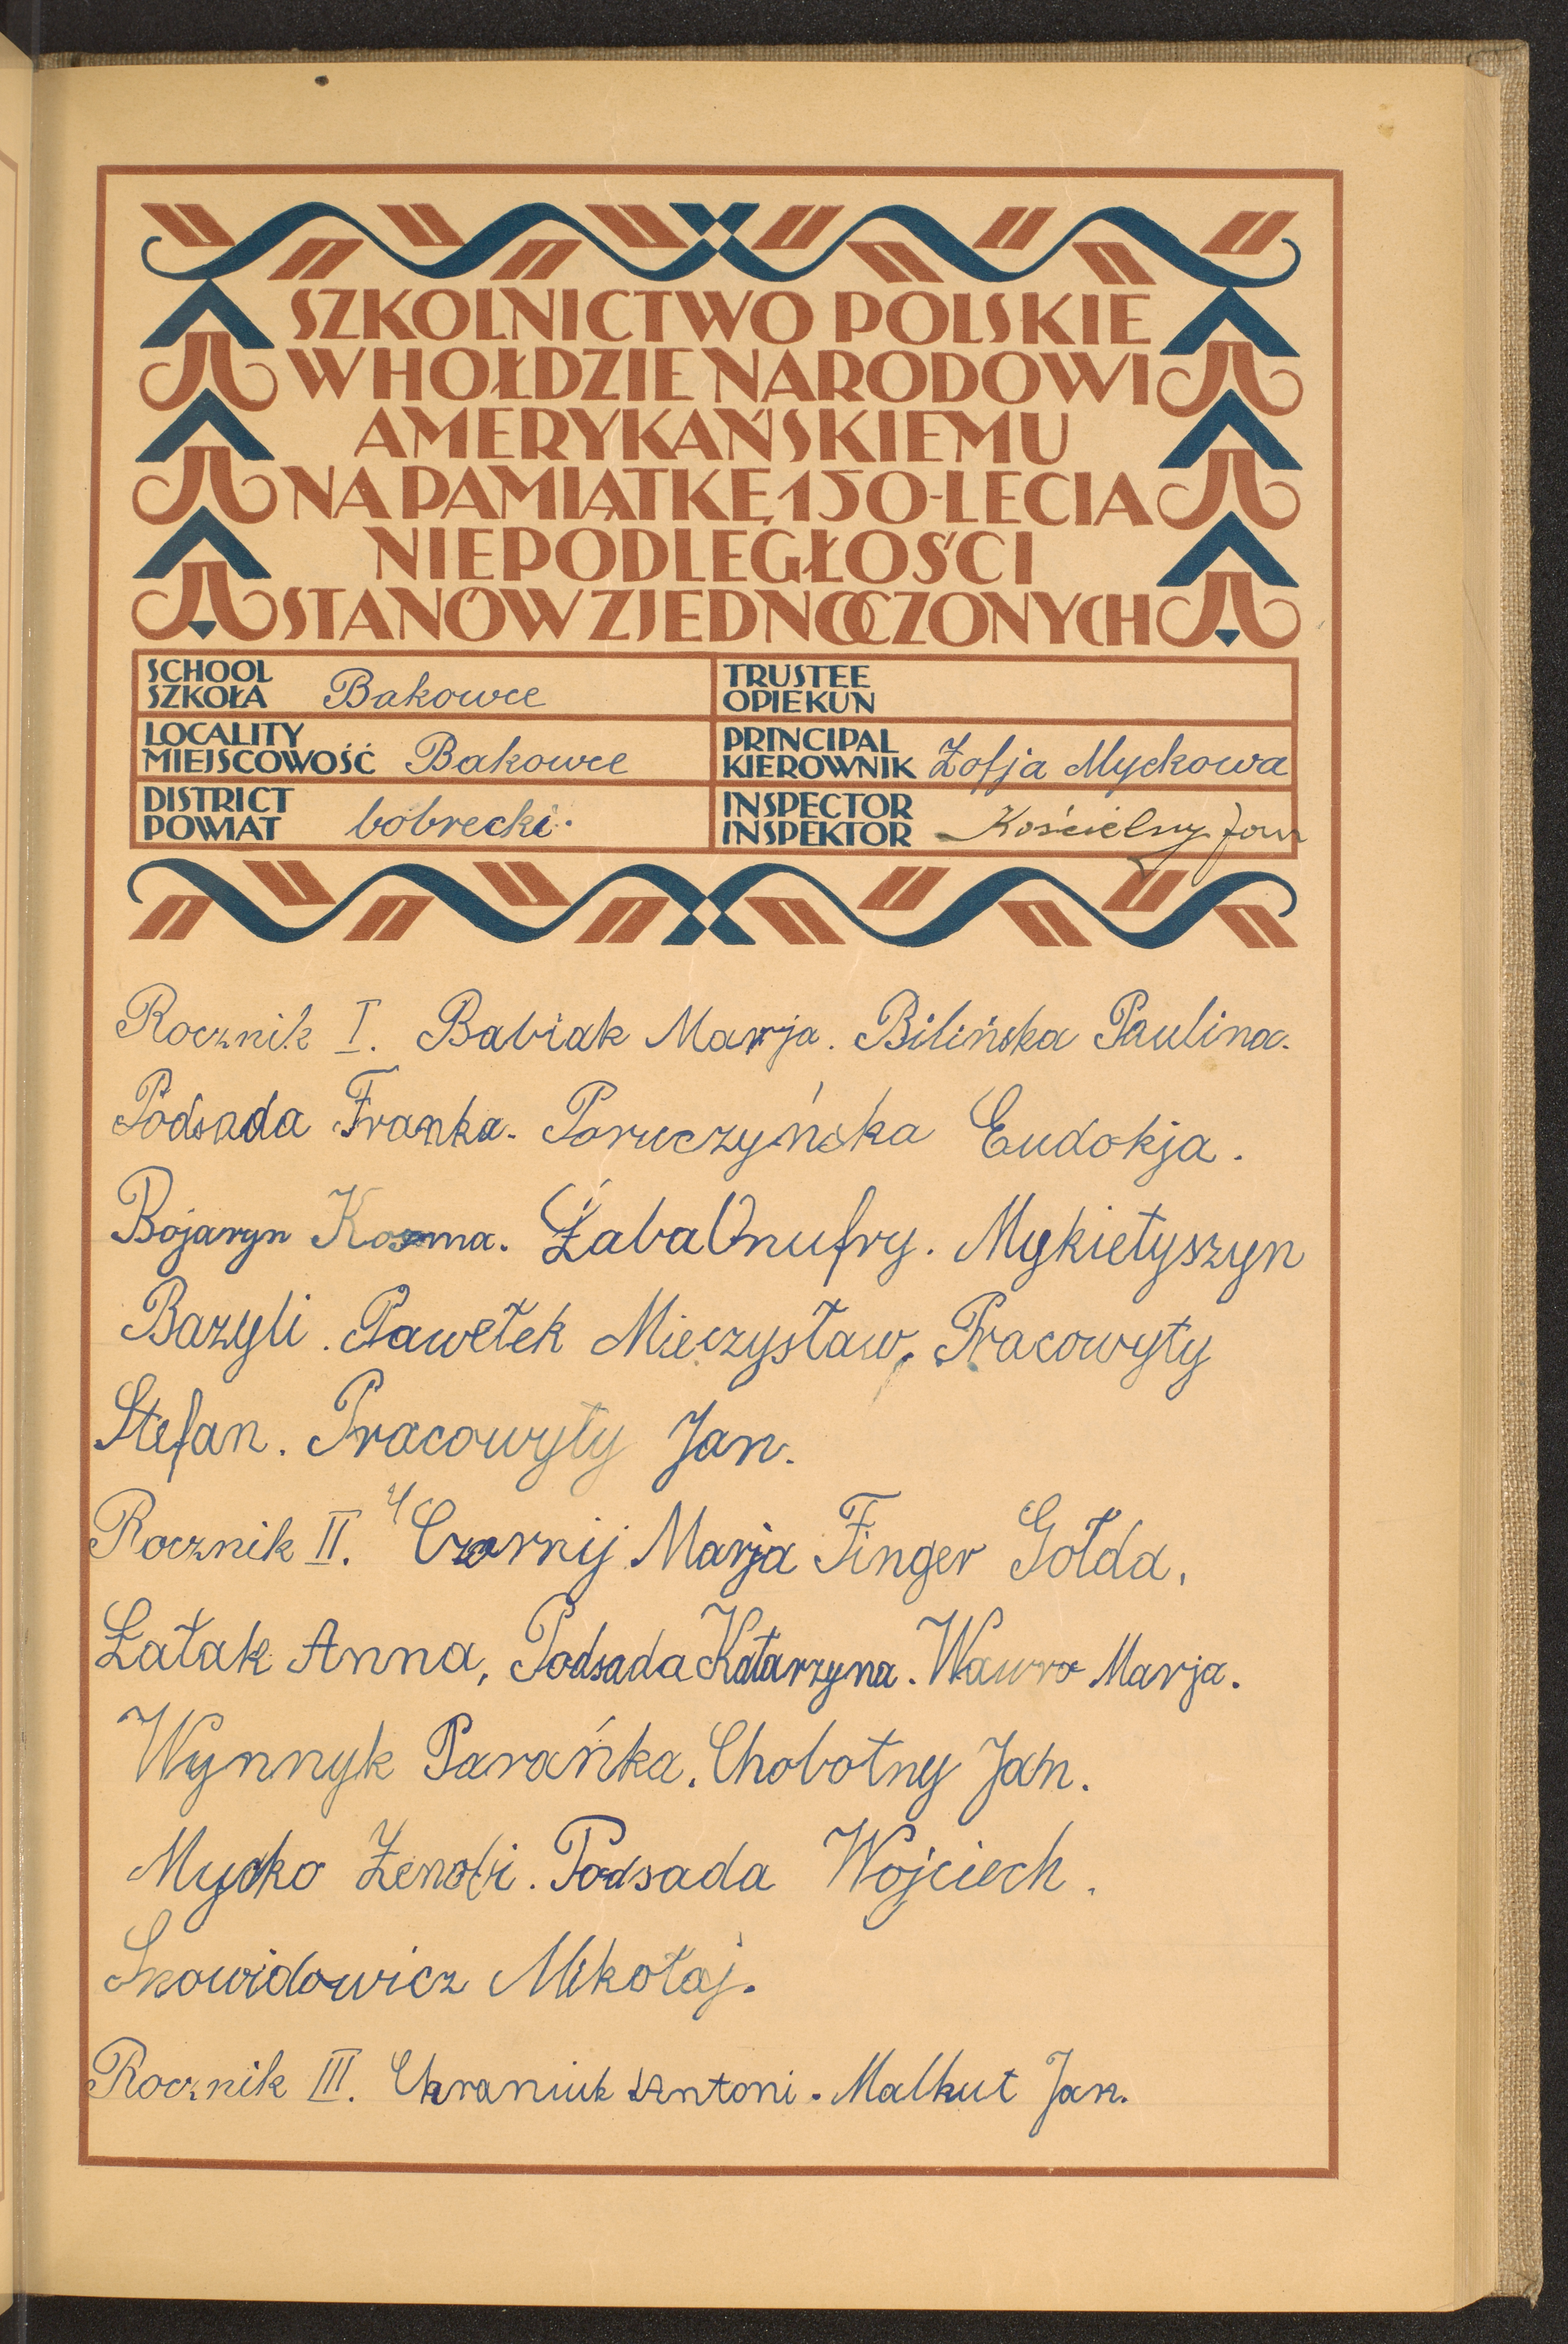 SZKOLNICTWO POLSKIE
W HOŁDZIE NARODOWI
AMERYKAŃSKIEMU
NA PAMIĄTKĘ 150-LECIA
NIEPODLEGŁOŚCI
STANÓW ZJEDNOCZONYCH
SCHOOL
SZKOŁA Bakowce
TRUSTEE
OPIEKUN
LOCALITY
MIEJSCOWOŚĆ Bakowce
PRINCIPAL
KIEROWNIK Zofja Myckowa
DISTRICT
POWIAT bobrecki.
INSPECTOR
INSPEKTOR Kościelny Jan
Rocznik I. Babiak Marja. Bilińska Paulina.
Podsada Franka. Poruczyńska Eudokja.
Bojaryn Kosma. Żaba Onufry. Mykietyszyn
Bazyli. Pawełek Mieczysław, Pracowyty
Stefan. Pracowyty Jan.
Rocznik II. Czornij Marja Finger Gołda,
Łatak Anna, Podsada Katarzyna. Wawro Marja.
Wynnyk Parańka. Chobotny Jan.
Mycko Zenobi. Podsada Wojciech.
Skowidowicz Mikołaj.
Rocznik III. Chraniuk Antoni. Malkut Jan.